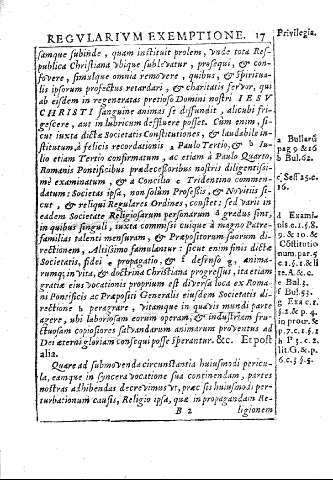 REGVLARIVM EXEMPTIONE. 17
samque subinde, quam instituit prolem, vnde tota Res-
publica Christiana vbique subleuatur, prosequi, & con-
fovere, simulque omnia remouere, quibus, & Spiritua-
lis ipsorum profectus retardari, & charitatis fervor, qui
ab eisdem in regeneratas pretioso Domini nostri IESV
CHRISTI sanguine animas se diffundit, alicubi fri-
gescere, aut in lubricum desistuere posset. Cum enim, si-
cut iuxta dictæ Societatis Constitutiones, & laudabile in-
stitutum, à felicis recordationis a Paulo Tertio, & b Iu-
lio etiam Tertio confirmatum, ac etiam à Paulo Quarto,
Romanis Pontificibus prædecessoribus nostris diligentissi-
mè examinatum, & a Concilio c Tridentino commen-
datum: Societas ipsa, non solùm Professis, & Novitiis si-
cut, & reliqui Regulares Ordines, constet: sed varii in
eadem Societate Religiosarum personarum d gradus sint,
in quibus singuli, iuxta commissi cuique à magno Patre-
familias talenti mensuram, & Præpositorum suorum di-
rectionem, Altissimo famulantur: sicut enim finis dictæ
Societatis, fidei e propagatio, & f defensio g, anima-
rumq; in vita, & doctrina Christiana progressus, ita etiam
gratiæ eius vocationis proprium est diversa loca ex Roma-
ni Pontificis ac Præpositi Generalis eiusdem Societatis di-
rectione h peragrare, vitamque in quavis mundi parte
agere, ubi laboriosam eorum operam, & industriam fru-
ctuosam copiosiores salvandarum animarum proventus ad
Dei æterni gloriam consequi posse sperantur. &c. Et post
alia.
Quare ad submovenda circunstantia huiusmodi pericu-
la, eamque in syncera vocatione sua continendam, partes
nostras adhibendas decrevimus, præ sis huiusmodi per-
turbationum causis, Religio ipsa, quæ in propagandam Re-
B 2 ligionem
Privilegia.
a Bullarū
pag 9 & 16
b Bul. 62.
c Sess 25. c.
16.
d Exami-
nis c. 1. §. 8.
9. & 10. &
Cōstitutio
num par. 5
c. 1. §. 1. & li
te. A. & c.
e Bul. 3.
f Bul. 53.
g Exa c. 1.
§. 2. & p. 4
in prour. &
p. 7. c. 1. §. 1
h P 3. c. 2.
lit. G. & p.
6. c. 3. §. 5.